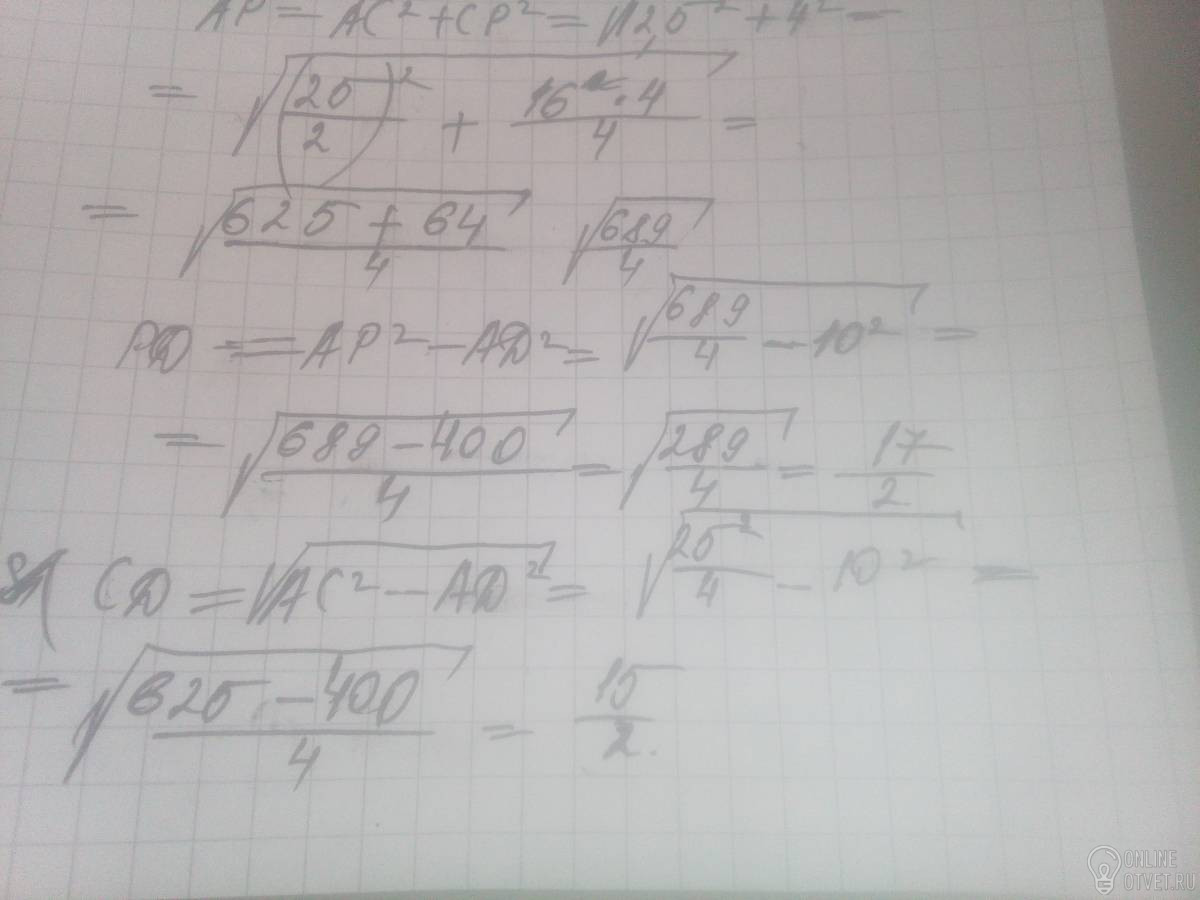 AP = AC² + CP² = √12,5² + 4² =
= √(25/2)² + 16·4/4 =
= √625 + 64/4 √689/4
PD = AP² − AD² = √689/4 − 10² =
= √689 − 400/4 = √289/4 = 17/2
CD = √AC² − AD² = √25²/4 − 10² =
= √625 − 400/4 = 15/2
ONLINE
OTVET.RU